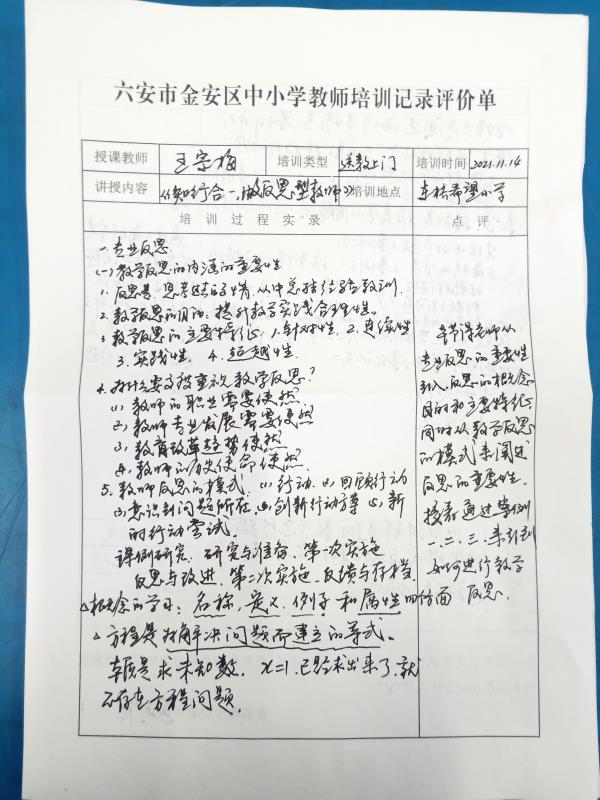 六安市金安区中小学教师培训记录评价单
授课教师 王宗梅 培训类型 送教上门 培训时间 2021.11.14
讲授内容 《知行合一,做反思型教师》 培训地点 东桥希望小学
培训过程实录 点评
一.专业反思
(一)教学反思的内涵的重要性
1. 反思是:思考过去的事情,从中总结经验教训.
2. 教学反思的目的:提升教学实践合理性。
3 教学反思的主要特征:1.针对性 2.连续性
3. 实践性 4. 超越性.
4. 为什么要重视教学反思?
(1) 教师的职业需要使然
(2) 教师专业发展需要使然
(3) 教育改革趋势使然
(4) 教师的历史使命使然
5. 教师反思的模式:(1)行动 (2)回顾行动
(3)意识到问题所在 (4)创新行动方案 (5)新
的行动尝试.
课例研究:研究与准备.第一次实施
反思与改进.第二次实施.反馈与存档.
△概念的学习:名称,定义,例子和属性四方面
△方程是为解决问题而建立的等式。
本质是求未知数. x=1.已经求出来了,就
不存在方程问题.
本节课老师从
专业反思的重要性
引入,反思的概念
目的和主要特征,
同时从教学反思
的模式来阐述
反思的重要性.
接着通过案例
一.二.三.来引到
如何进行教学
反思.